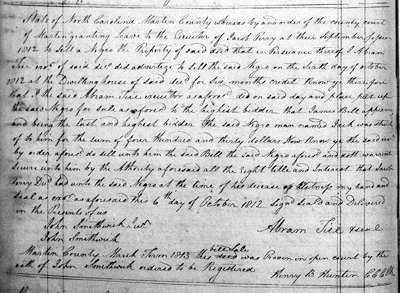 State of North Carolina Martin County whereas by and order of the county court
of Martin granting leave to the Executor of Jacob Perry at their September term
1812 to sell a Negro the Property of said decd that in Persuance thereof I Abram
exor. of said decd did advertise to sell the said Negro on the Sixth day of october
1812 at the Dwelling house of said decd for Six months credit Know ye therefore
that I the said Abram Tice executor aforesd did on said day and place put up
the said Negro for sale as aforesd to the highest bidder that James Bell appeared
and being the last and highest bidder the said Negro man named Jack was struck
of to him for the sum of Four Hundred and thirty dollars Now Know ye the said exor
by order aforesd do sell unto him the said Bell the said Negro aforesd and doth warrant
Secure unto him by the Athority aforesaid all the Right title and Interest that Jacob
Perry Decd had unto the said Negro at the time of his decease as Witness my hand and
Seal as exor as aforesaid this 6th day of October 1812 Signd Seald and Delivered
in the Presents of us
John Smithwick Jur
John Smithwick
Abram Tice seal
Martin County March Term 1813 this bill sale was Proven in open court by the
oath of John Smithwick ordered to be Registered
Henry B Hunter CCClk